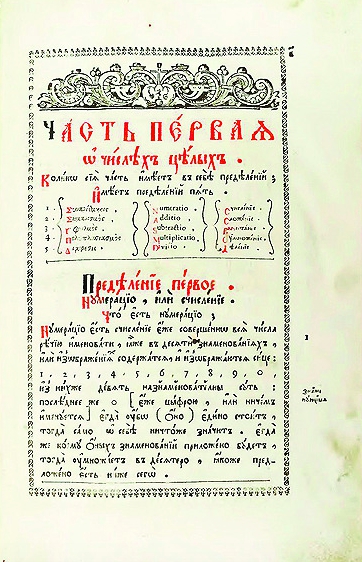 ЧА́СТЬ ПЕ́РВАѦ
ѡ҆ чи́слѣхъ цѣ́лыхъ.
Коли́кѡ сїѧ̀ ча́сть и҆мѣ́етъ въ себѣ̀ предѣле́нїй;
И҆мѣ́етъ предѣле́нїй пѧ́ть.
1. Numeratio, Счисле́нїе.
2. Additio, Сложе́нїе.
3. Subtractio,
4. Multiplicatio, Оу҆множе́нїе.
5. Divisio, Дѣле́нїе.
Предѣле́нїе пе́рвое.
Нꙋмера́цїо, и҆лѝ счисле́нїе.
Что̀ є҆́сть нꙋмера́цїо;
Нꙋмера́цїо є҆́сть счисле́нїе є҆́же соверше́ннѡ всѧ̑ чи́сла
рѣ́чїю и҆менова́ти, ꙗ҆̀же въ десѧтѝ знаменова́нїихъ,
и҆лѝ и҆з̾ѡбраже́нїихъ содержа́тсѧ, и҆ и҆з̾ѡбража́ютсѧ си́це:
1, 2, 3, 4, 5, 6, 7, 8, 9, 0,
из ни́хже де́вѧть назнамена́телны сꙋ́ть:
послѣ́днее же 0 [є҆́же цы́фрою, и҆лѝ ничѣ́мъ
и҆менꙋ́етсѧ] є҆гда̀ ᲂу҆́бѡ [ѻ҆́но] є҆ди́но стои́тъ,
тогда̀ са́мо ѡ҆ себѣ̀ ничто́же зна́читъ. є҆гда̀
же ко́мꙋ ѻ҆́ныхъ знаменова́нїй приложе́но бꙋ́детъ,
тогда̀ ᲂу҆мно́житъ въ де́сѧтеро, ꙗ҆́коже пред-
ложе́но є҆́сть ни́же сегѡ̀.
1